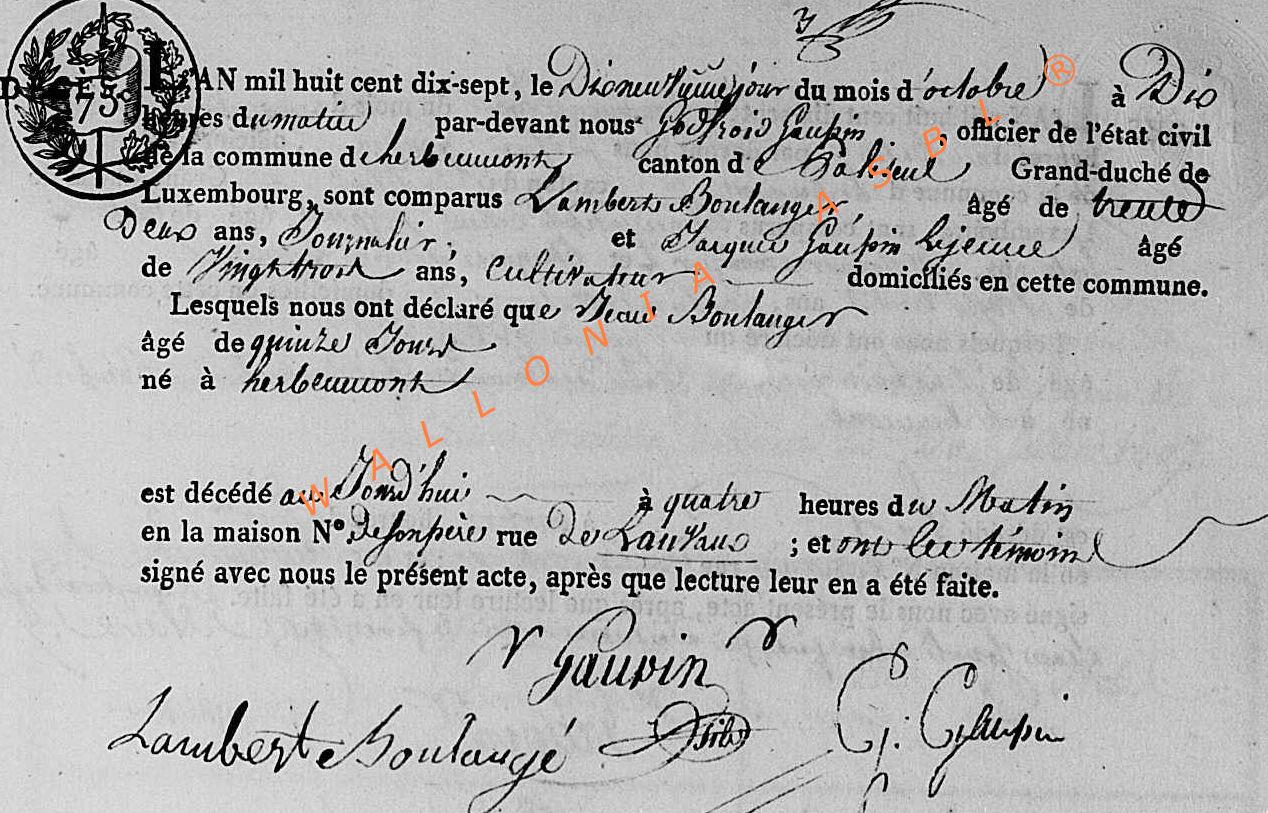 DÉCÈS.
73
L'AN mil huit cent dix-sept, le Dixneuvieme jour du mois d'octobre à Dix
heures du matin par-devant nous Godfroid Gaupin, officier de l'état civil
de la commune d'herbeumont canton de Paliseul Grand-duché de
Luxembourg, sont comparus Lambert Boulanger, âgé de trente
Deux ans, Journalier. et Jacques Gaupin Lejeune âgé
de Vingttrois ans, Cultivateur domiciliés en cette commune.
Lesquels nous ont déclaré que Jean Boulanger
âgé de quinze Jours
né à herbeumont
est décédé aujourd'hui à quatre heures du Matin
en la maison N° de Son père rue De ; et ont les témoins
signé avec nous le présent acte, après que lecture leur en a été faite.
Gaupin
Lambert Boulangé G: Gaupin
WALLONIA ASBL ®